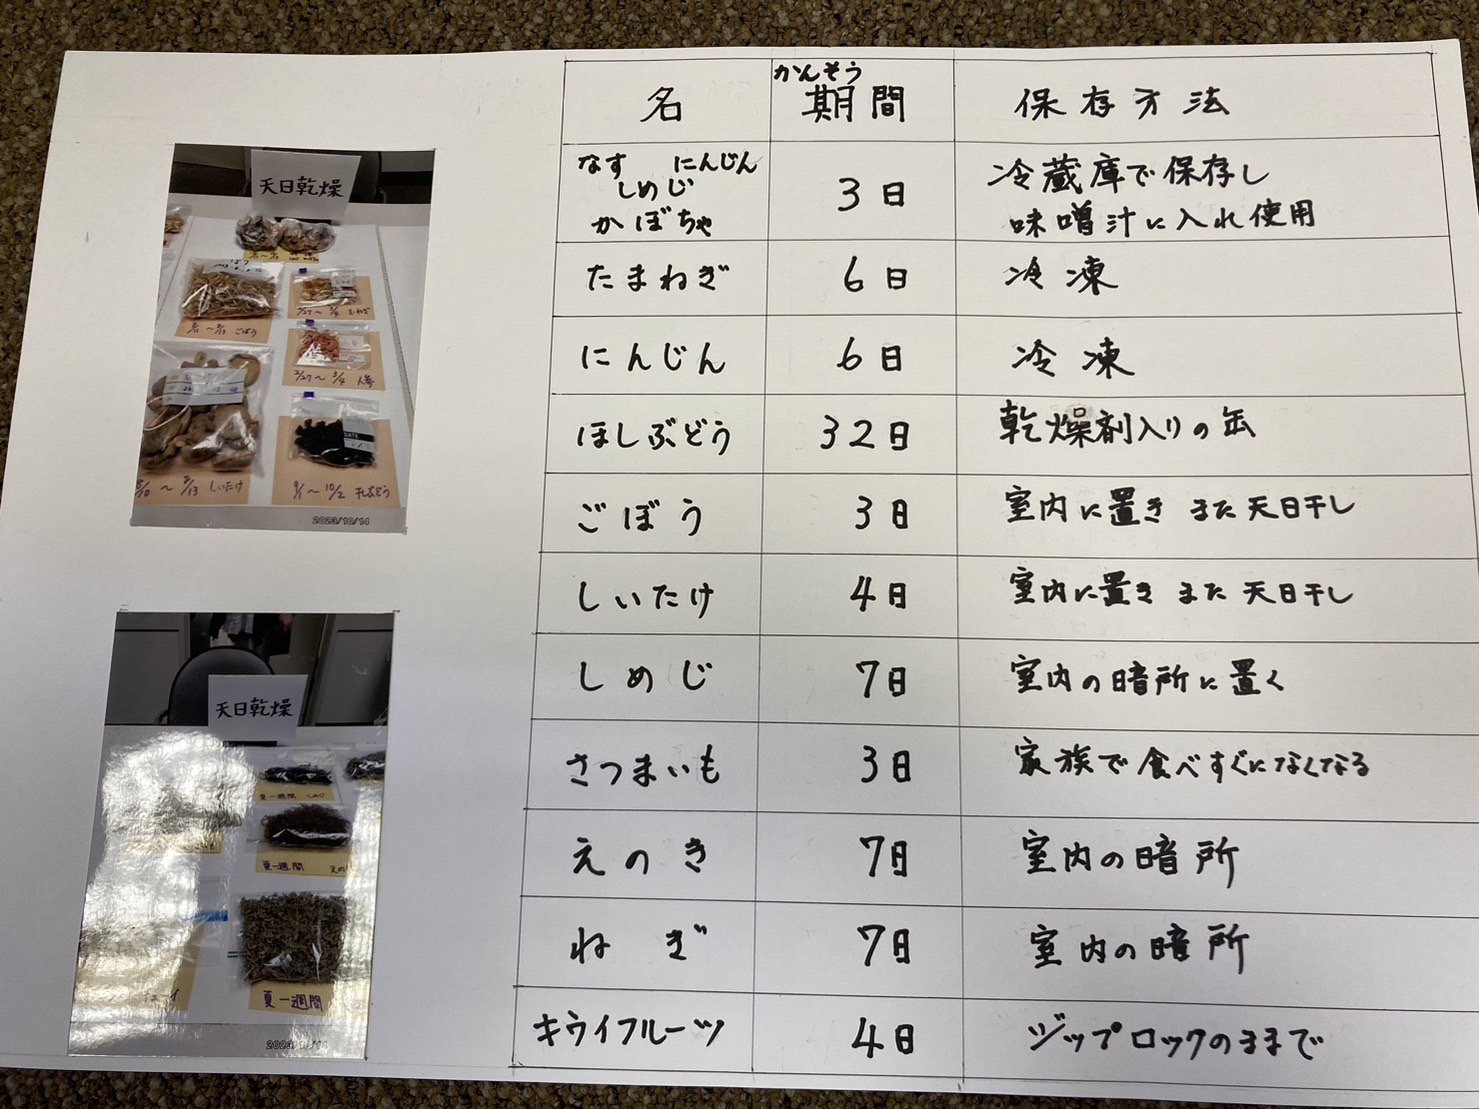 名
かんそう
期間
保存方法
なす にんじん
しめじ
かぼちゃ
3日
冷蔵庫で保存し
味噌汁に入れ使用
たまねぎ
6日
冷凍
にんじん
6日
冷凍
ほしぶどう
32日
乾燥剤入りの缶
ごぼう
3日
室内に置き また天日干し
しいたけ
4日
室内に置き また天日干し
しめじ
7日
室内の暗所に置く
さつまいも
3日
家族で食べすぐになくなる
えのき
7日
室内の暗所
ねぎ
7日
室内の暗所
キウイフルーツ
4日
ジップロックのままで
天日乾燥
ごぼう
2/27～3/4 人参
8/10～8/13 しいたけ
9/1～10/2 干しぶどう
2023/10/14
天日乾燥
夏一週間 しめじ
夏一週間
夏一週間